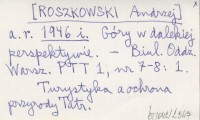 [ROSZKOWSKI Andrzej]
a.r. 1946 i. Góry w dalekiej
perspektywie. – Biul. Oddz.
Warsz. PTT 1, nr 7-8: 1.
Turystyka a ochrona
przyrody Tatr.